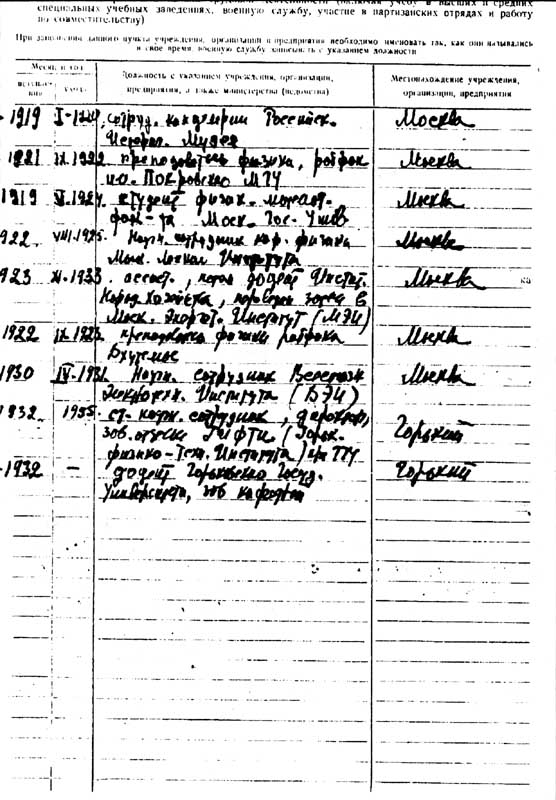 специальных учебных заведениях, военную службу, участие в партизанских отрядах и работу
по совместительству)
При заполнении данного пункта учреждения, организации и предприятия необходимо именовать так, как они назывались
в свое время, военную службу записывать с указанием должности
Месяц и год
Должность с указанием учреждения, организации,
предприятия, а также министерства (ведомства)
Местонахождение учреждения,
организации, предприятия
1919 сотруд. Российск. Москва
Истор. Музея
1921 IX.1922 преподаватель физики, рабфак Москва
им. Покровского МГУ
1919 студент физик. Москва
фак-та Моск. Гос. Унив
922 VIII.1925. Научн. сотрудник кар. физики Москва
Института
923 XI.1933 ассист., потом доцент Инстит. Москва
Народ. Хозяйства, в
Моск. Энергет. Институт (МЭИ)
1922 преподаватель физики рабфака Москва
Вхутемас
1930 IV.1931 Научн. сотрудник Всесоюзн Москва
Электротехн. Института (ВЭИ)
1932 1955 ст. научн. сотрудник, Горький
зав. отделом ГИФТИ (Горьк.
физико-Техн. Института) при ГГУ
-1932 — доцент Горьковского Госуд. Горький
Университета, зав кафедрой